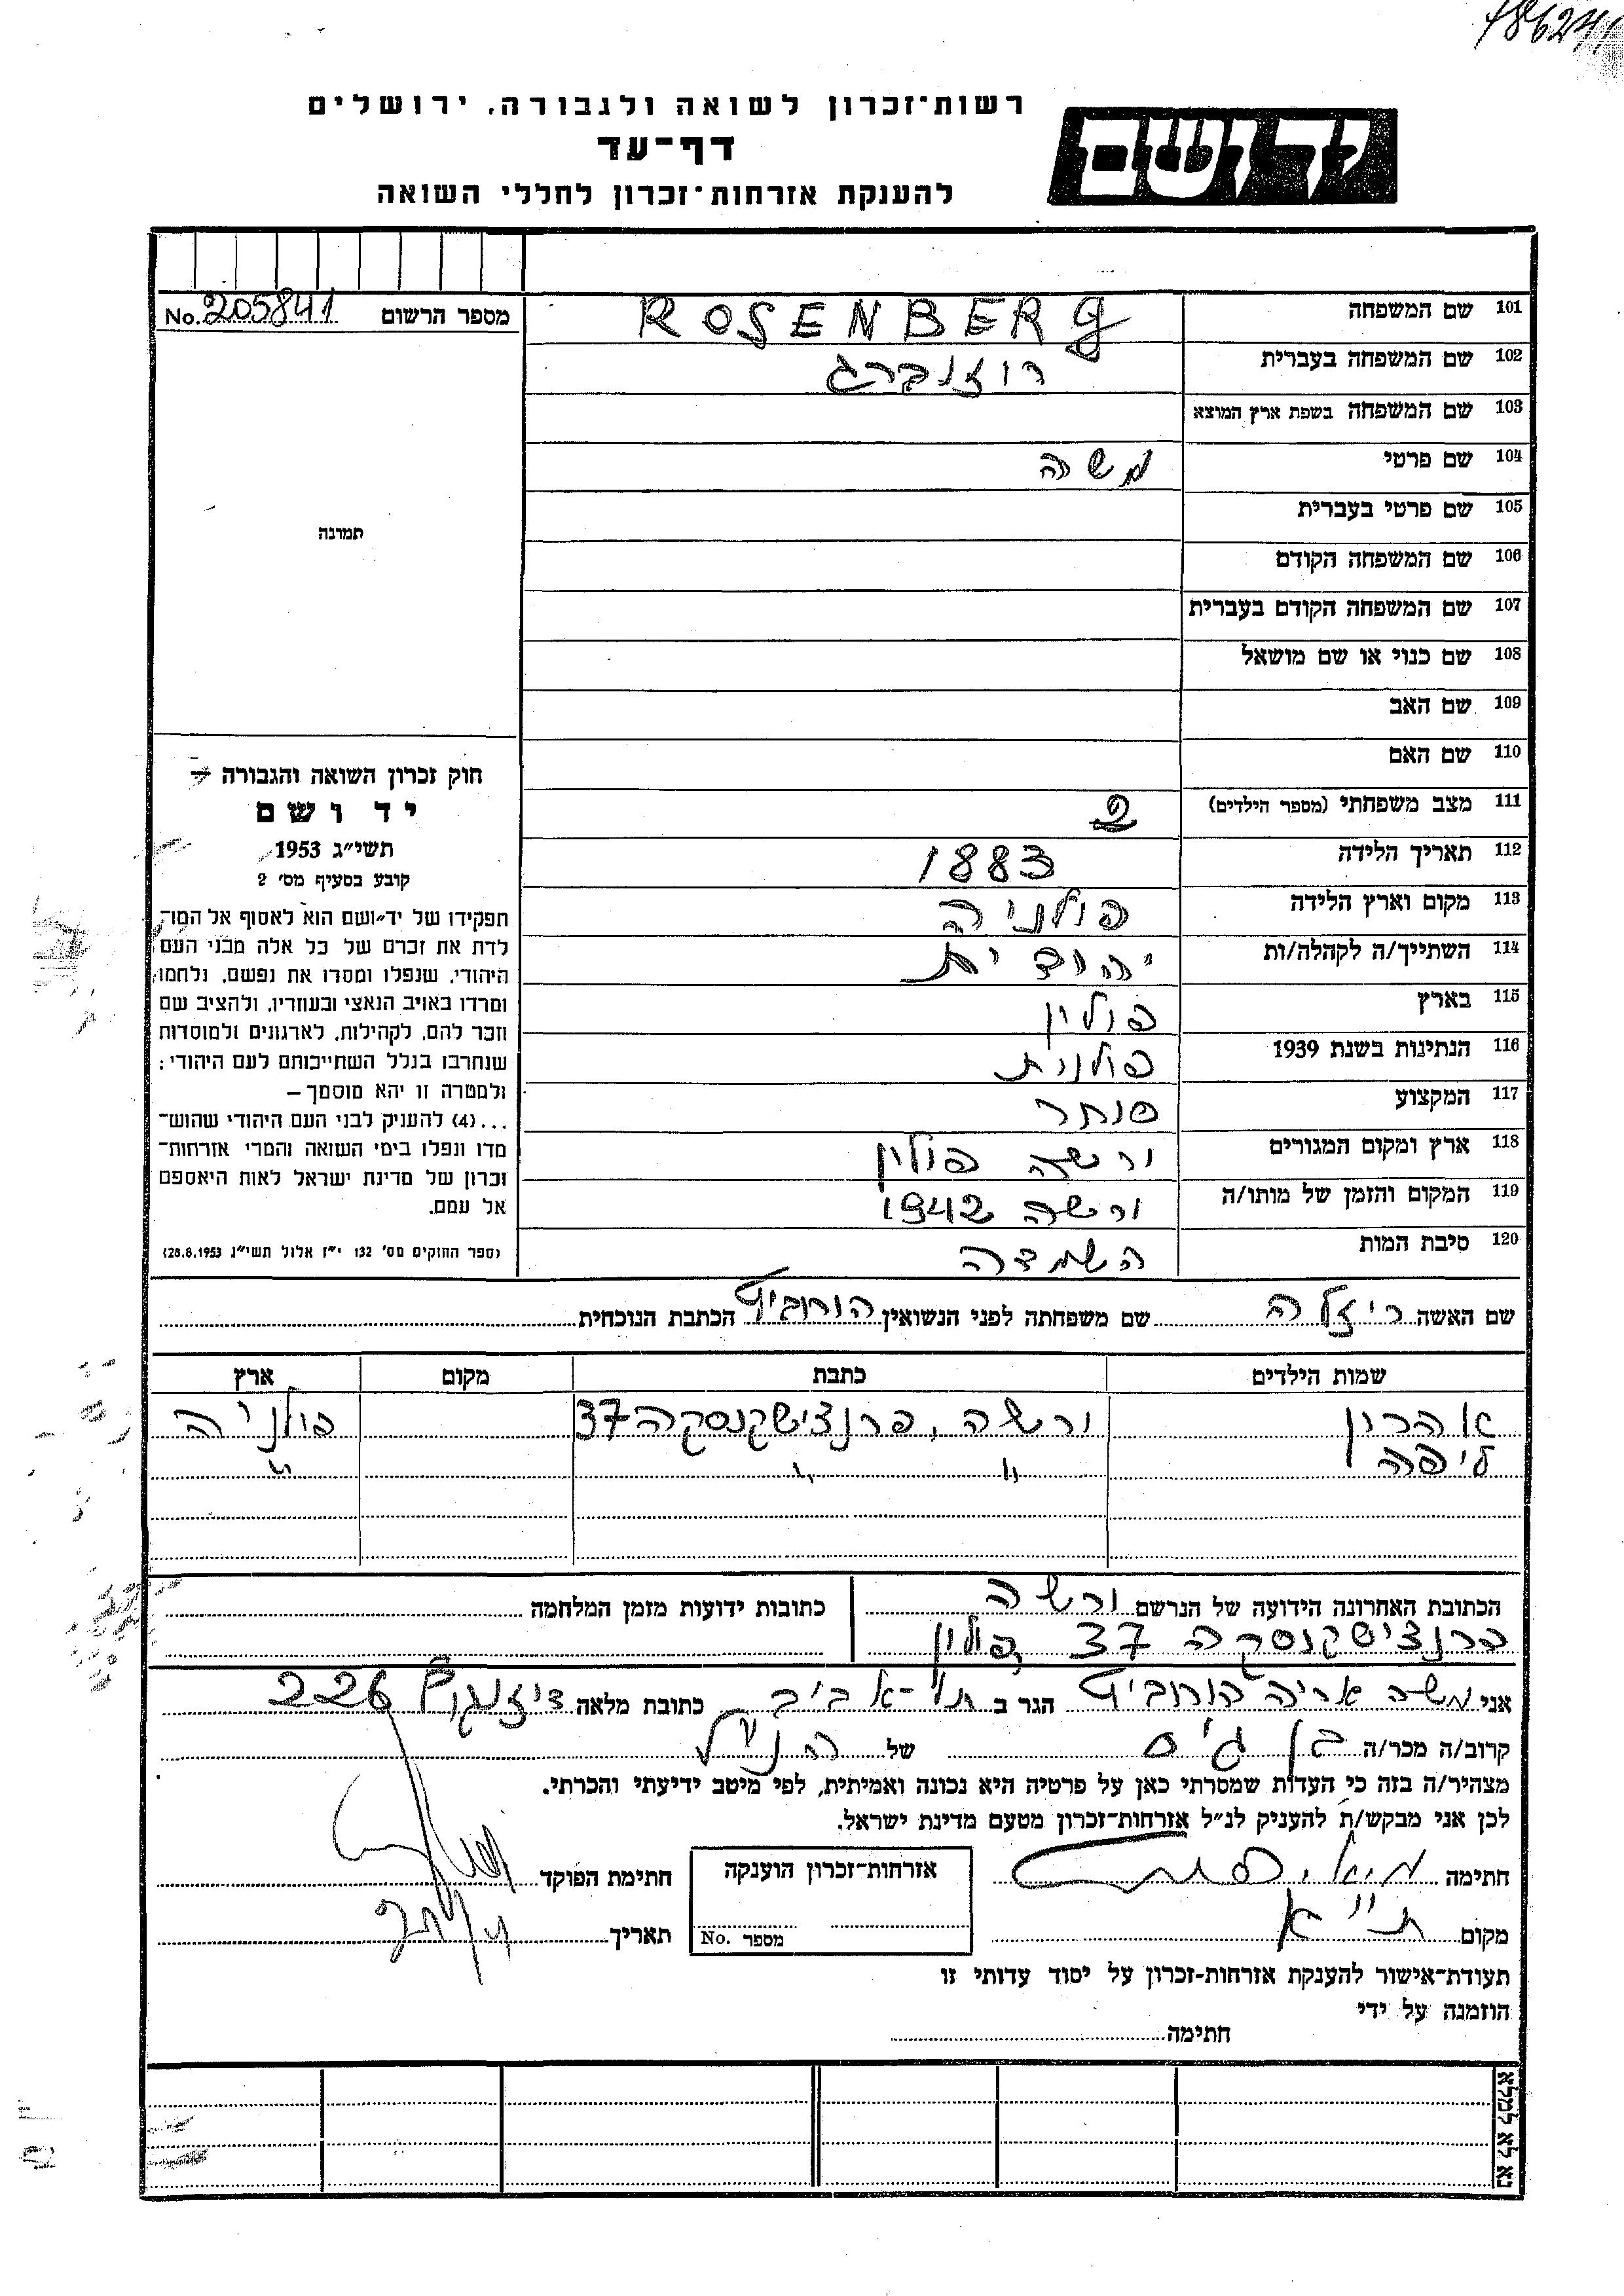 786271
רשות־זכרון לשואה ולגבורה, ירושלים
דף־עד
להענקת אזרחות־זכרון לחללי השואה
יד ושם
מספר הרשום No. 205841
תמונה
101 שם המשפחה ROSENBERG
102 שם המשפחה בעברית רוזנברג
103 שם המשפחה בשפת ארץ המוצא
104 שם פרטי משה
105 שם פרטי בעברית
106 שם המשפחה הקודם
107 שם המשפחה הקודם בעברית
108 שם כנוי או שם מושאל
109 שם האב
110 שם האם
111 מצב משפחתי (מספר הילדים) 2
112 תאריך הלידה 1883
113 מקום וארץ הלידה פולניה
114 השתייך/ה לקהלה/ות יהודית
115 בארץ פולין
116 הנתינות בשנת 1939 פולנית
117 המקצוע סוחר
118 ארץ ומקום המגורים ורשה פולין
119 המקום והזמן של מותו/ה ורשה 1942
120 סיבת המות השמדה
חוק זכרון השואה והגבורה –
יד ושם
תשי״ג 1953
קובע בסעיף מס׳ 2
תפקידו של יד־ושם הוא לאסוף אל המו־
לדת את זכרם של כל אלה מבני העם
היהודי, שנפלו ומסרו את נפשם, נלחמו
ומרדו באויב הנאצי ובעוזריו, ולהציב שם
וזכר להם, לקהילות, לארגונים ולמוסדות
שנחרבו בגלל השתייכותם לעם היהודי:
ולמטרה זו יהא מוסמך –
...(4) להעניק לבני העם היהודי שהוש־
מדו ונפלו בימי השואה והמרי אזרחות־
זכרון של מדינת ישראל לאות היאספם
אל עמם.
(ספר החוקים מס׳ 132 י״ז אלול תשי״ג 28.8.1953)
שם האשה רייזלה שם משפחתה לפני הנשואין הורוביץ הכתבת הנוכחית
שמות הילדים כתבת מקום ארץ
אהרון ורשה, פרנצישקנסקה 37 פולניה
ליפה " " "
הכתובת האחרונה הידועה של הנרשם ורשה
פרנצישקנסקה 37 פולין
כתובות ידועות מזמן המלחמה
אני משה אריה הורוביץ הגר ב תל-אביב כתובת מלאה דיזנגוף 226
קרוב/ה מכר/ה בן גיס של הנ״ל
מצהיר/ה בזה כי העדות שמסרתי כאן על פרטיה היא נכונה ואמיתית, לפי מיטב ידיעתי והכרתי.
לכן אני מבקש/ת להעניק לנ״ל אזרחות־זכרון מטעם מדינת ישראל.
חתימה
אזרחות־זכרון הוענקה
חתימת הפוקד
מקום ת״א
מספר No.
תאריך
תעודת־אישור להענקת אזרחות-זכרון על יסוד עדותי זו
הוזמנה על ידי
חתימה
נא לא למלא